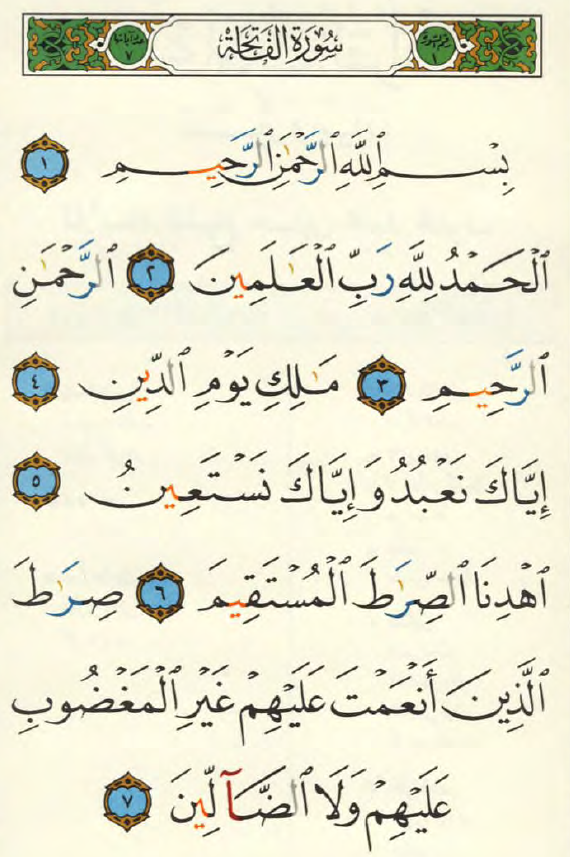 عدد آياتها ٧ سُورَةُ الفَاتِحَة رقم السورة ١
بِسْمِ ٱللَّهِ ٱلرَّحْمَٰنِ ٱلرَّحِيمِ ١
ٱلْحَمْدُ لِلَّهِ رَبِّ ٱلْعَٰلَمِينَ ٢ ٱلرَّحْمَٰنِ
ٱلرَّحِيمِ ٣ مَٰلِكِ يَوْمِ ٱلدِّينِ ٤
إِيَّاكَ نَعْبُدُ وَإِيَّاكَ نَسْتَعِينُ ٥
ٱهْدِنَا ٱلصِّرَٰطَ ٱلْمُسْتَقِيمَ ٦ صِرَٰطَ
ٱلَّذِينَ أَنْعَمْتَ عَلَيْهِمْ غَيْرِ ٱلْمَغْضُوبِ
عَلَيْهِمْ وَلَا ٱلضَّآلِّينَ ٧